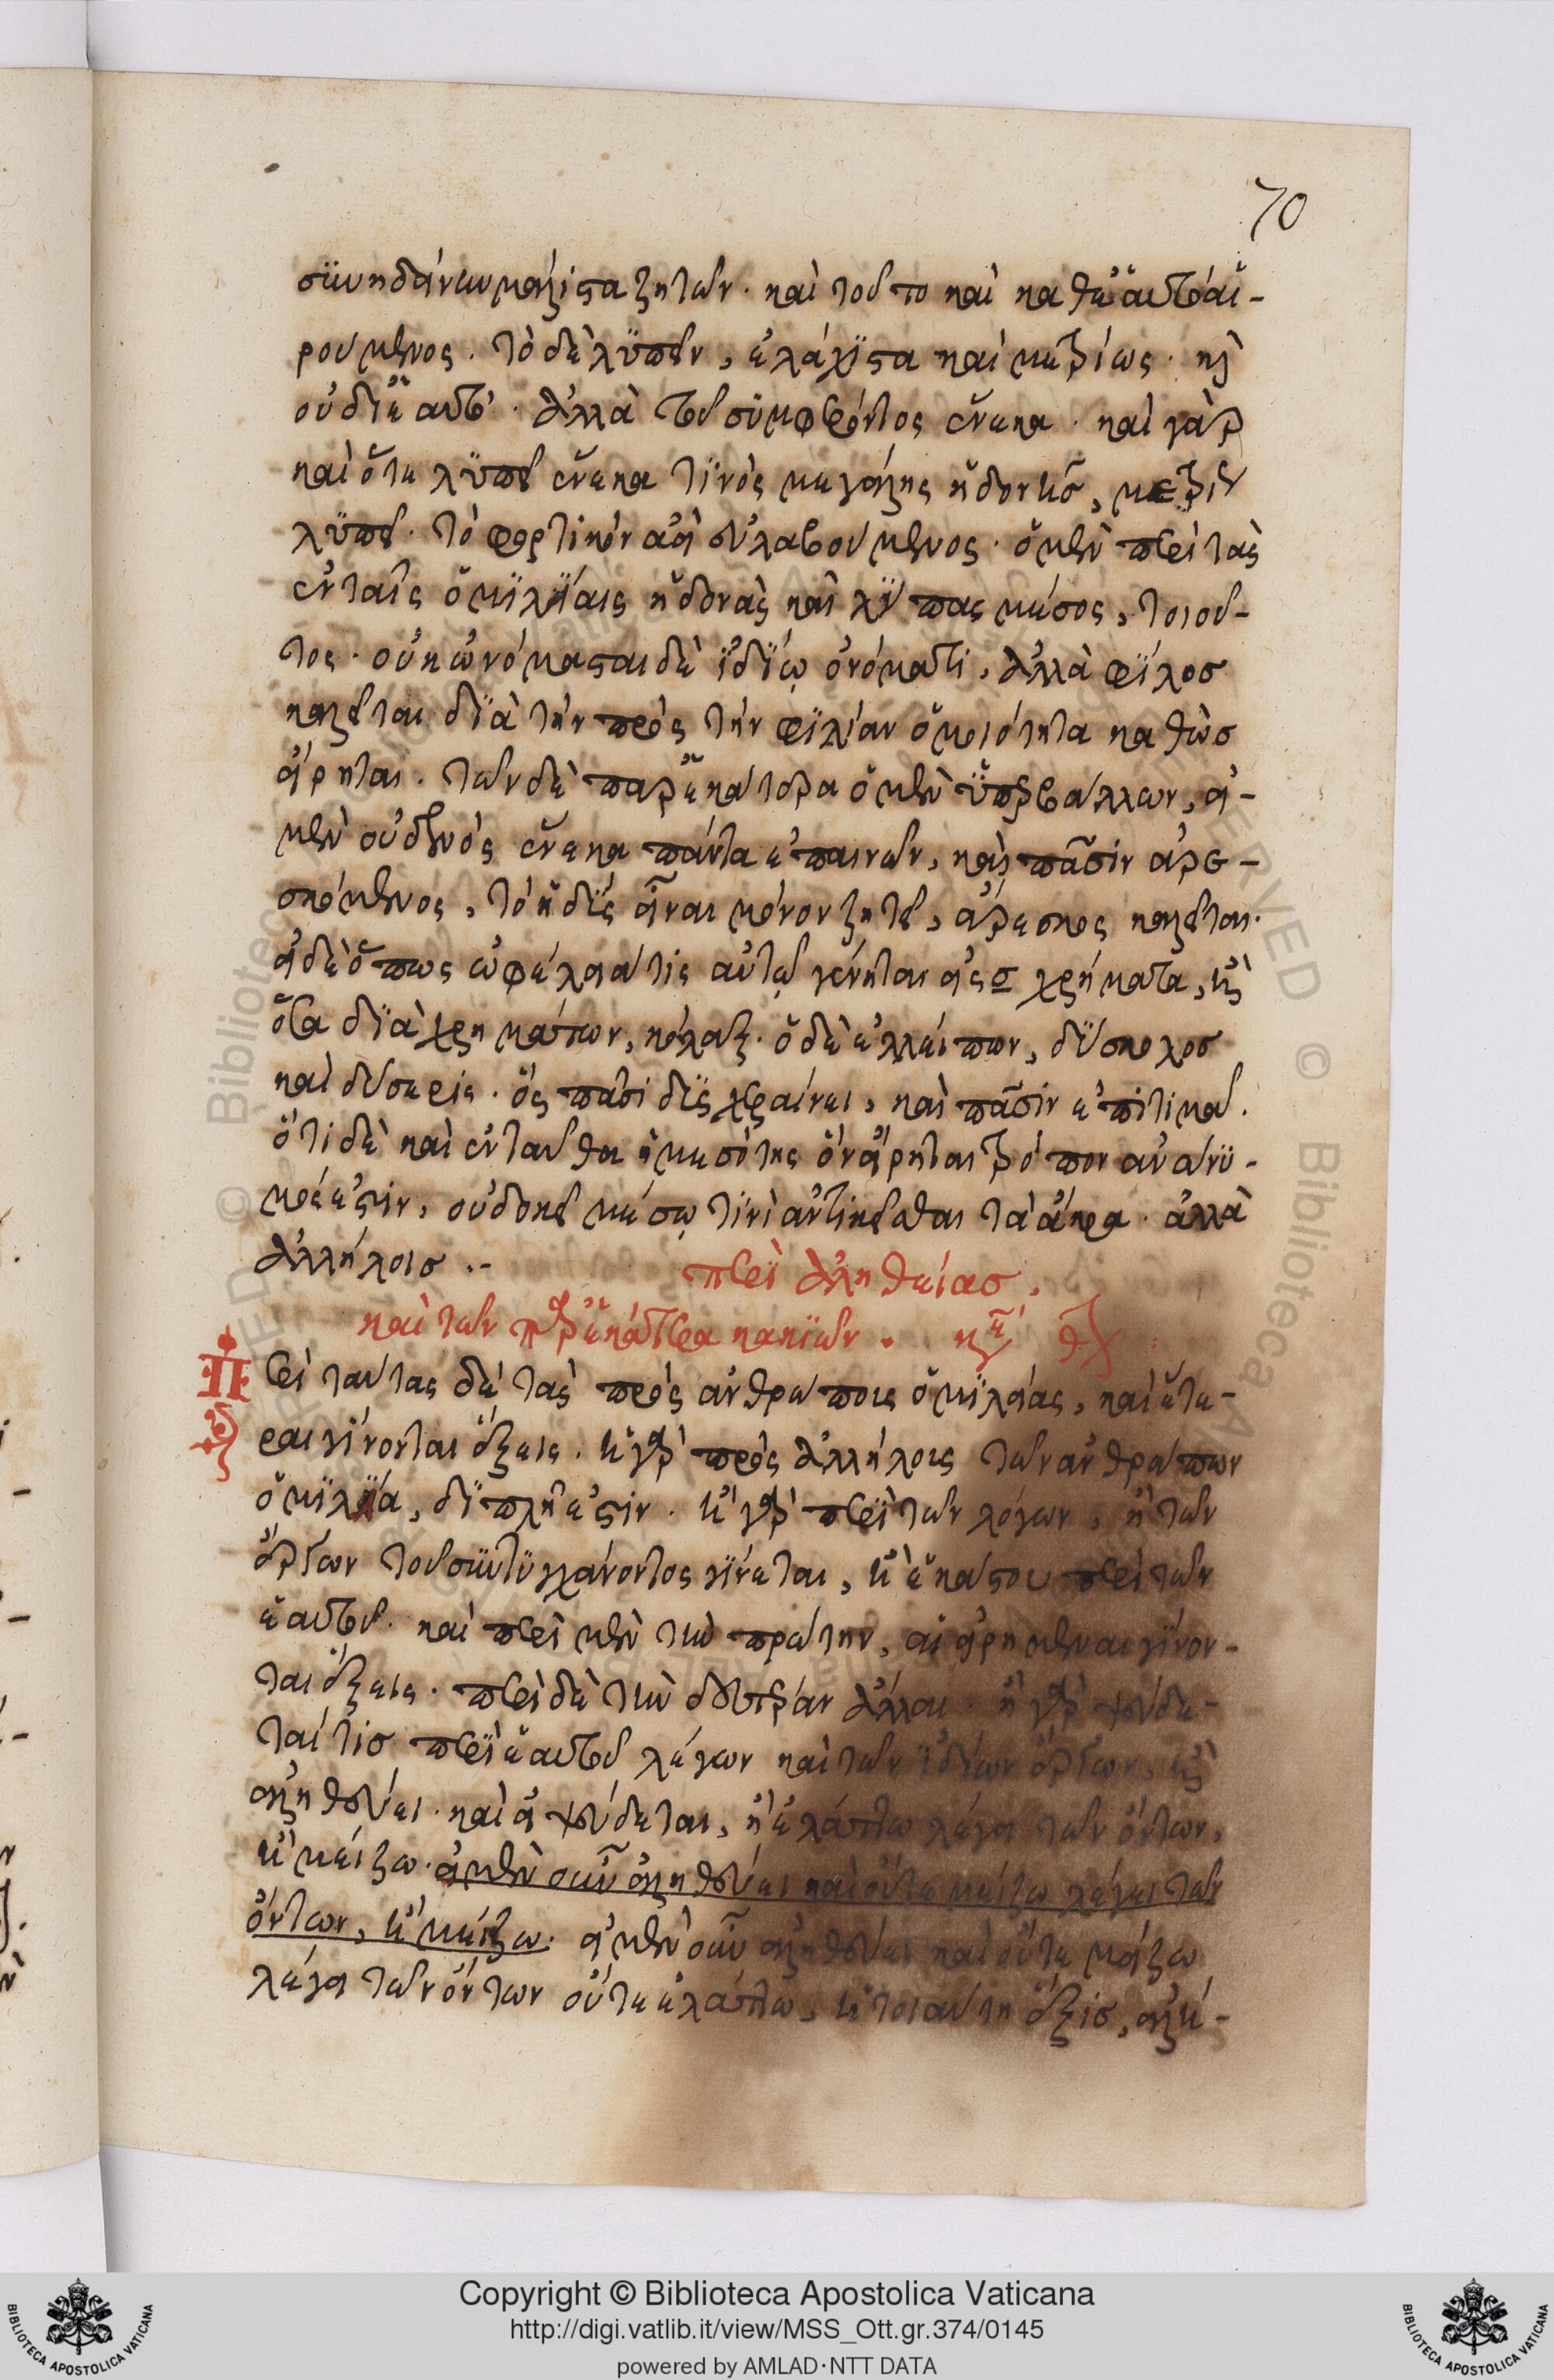 70
συνηδύνειν μάλιστα ζητῶν. καὶ τοῦτο καὶ καθ' ἑαυτὸ αἱ-
ρούμενος. τὸ δὲ λυπεῖν, ἐλάχιστα καὶ μετρίως. καὶ
οὐ δι' ἑαυτό. ἀλλὰ τοῦ συμφέροντος ἕνεκα. καὶ γὰρ
καὶ ὅτε λυπεῖ ἕνεκα τινὸς μεγάλης ἡδονῆς, μετρίως
λυπεῖ. τὸ φορτικὸν ἀεὶ εὐλαβούμενος. ὁ μὲν περὶ τὰς
ἐν ταῖς ὁμιλίαις ἡδονὰς καὶ λύπας μέσος, τοιοῦ-
τος. οὐκ ὠνόμασται δὲ ἰδίῳ ὀνόματι, ἀλλὰ φίλος
καλεῖται διὰ τὴν πρὸς τὴν φιλίαν ὁμοιότητα καθὼς
εἴρηται. τῶν δὲ παρ' ἑκάτερα ὁ μὲν ὑπερβάλλων, εἰ
μὲν οὐδενὸς ἕνεκα πάντα ἐπαινῶν, καὶ πᾶσιν ἀρε-
σκόμενος, τὸ ἡδὺς εἶναι μόνον ζητεῖ, ἄρεσκος καλεῖται.
εἰ δὲ ὅπως ὠφέλειά τις αὐτῷ γένηται εἰς χρήματα, καὶ
ὅσα διὰ χρημάτων, κόλαξ. ὁ δὲ ἐλλείπων, δύσκολος
καὶ δύσερις. ὃς πᾶσι δυσχεραίνει, καὶ πᾶσιν ἐπιτιμᾷ.
ὅτι δὲ καὶ ἐνταῦθα ἡ μεσότης ὃν εἴρηται τρόπον ἀνώνυ-
μός ἐστιν, οὐ δοκεῖ μέσῳ τινὶ ἀντικεῖσθαι τὰ ἄκρα. ἀλλὰ
ἀλλήλοις .-
περὶ ἀληθείας.
καὶ τῶν παρ' ἑκάτερα κακιῶν.
Περὶ ταύτας δὲ τὰς πρὸς ἀνθρώπους ὁμιλίας, καὶ ἕτε-
ραι γίνονται ἕξεις. ἡ γὰρ πρὸς ἀλλήλους τῶν ἀνθρώπων
ὁμιλία, διπλῆ ἐστιν. ἢ γὰρ περὶ τῶν λόγων, ἢ τῶν
ἔργων τοῦ συντυγχάνοντος γίνεται, ἢ ἑκάστου περὶ τῶν
ἑαυτοῦ. καὶ περὶ μὲν τὴν πρώτην, αἱ εἰρημέναι γίνον-
ται ἕξεις. περὶ δὲ τὴν δευτέραν ἄλλαι. ἢ γὰρ ψεύδε-
ταί τις περὶ ἑαυτοῦ λέγων καὶ τῶν ἰδίων ἔργων, ἢ
ἀληθεύει. καὶ εἰ ψεύδεται, ἢ ἐλάττω λέγει τῶν ὄντων,
ἢ μείζω. εἰ μὲν οὖν ἀληθεύει καὶ οὔτε μείζω λέγει τῶν
ὄντων, ἢ μείζω. εἰ μὲν οὖν ἀληθεύει καὶ οὔτε μείζω
λέγει τῶν ὄντων οὔτε ἐλάττω, ἡ τοιαύτη ἕξις, ἀλή-
Copyright © Biblioteca Apostolica Vaticana
http://digi.vatlib.it/view/MSS_Ott.gr.374/0145
powered by AMLAD·NTT DATA